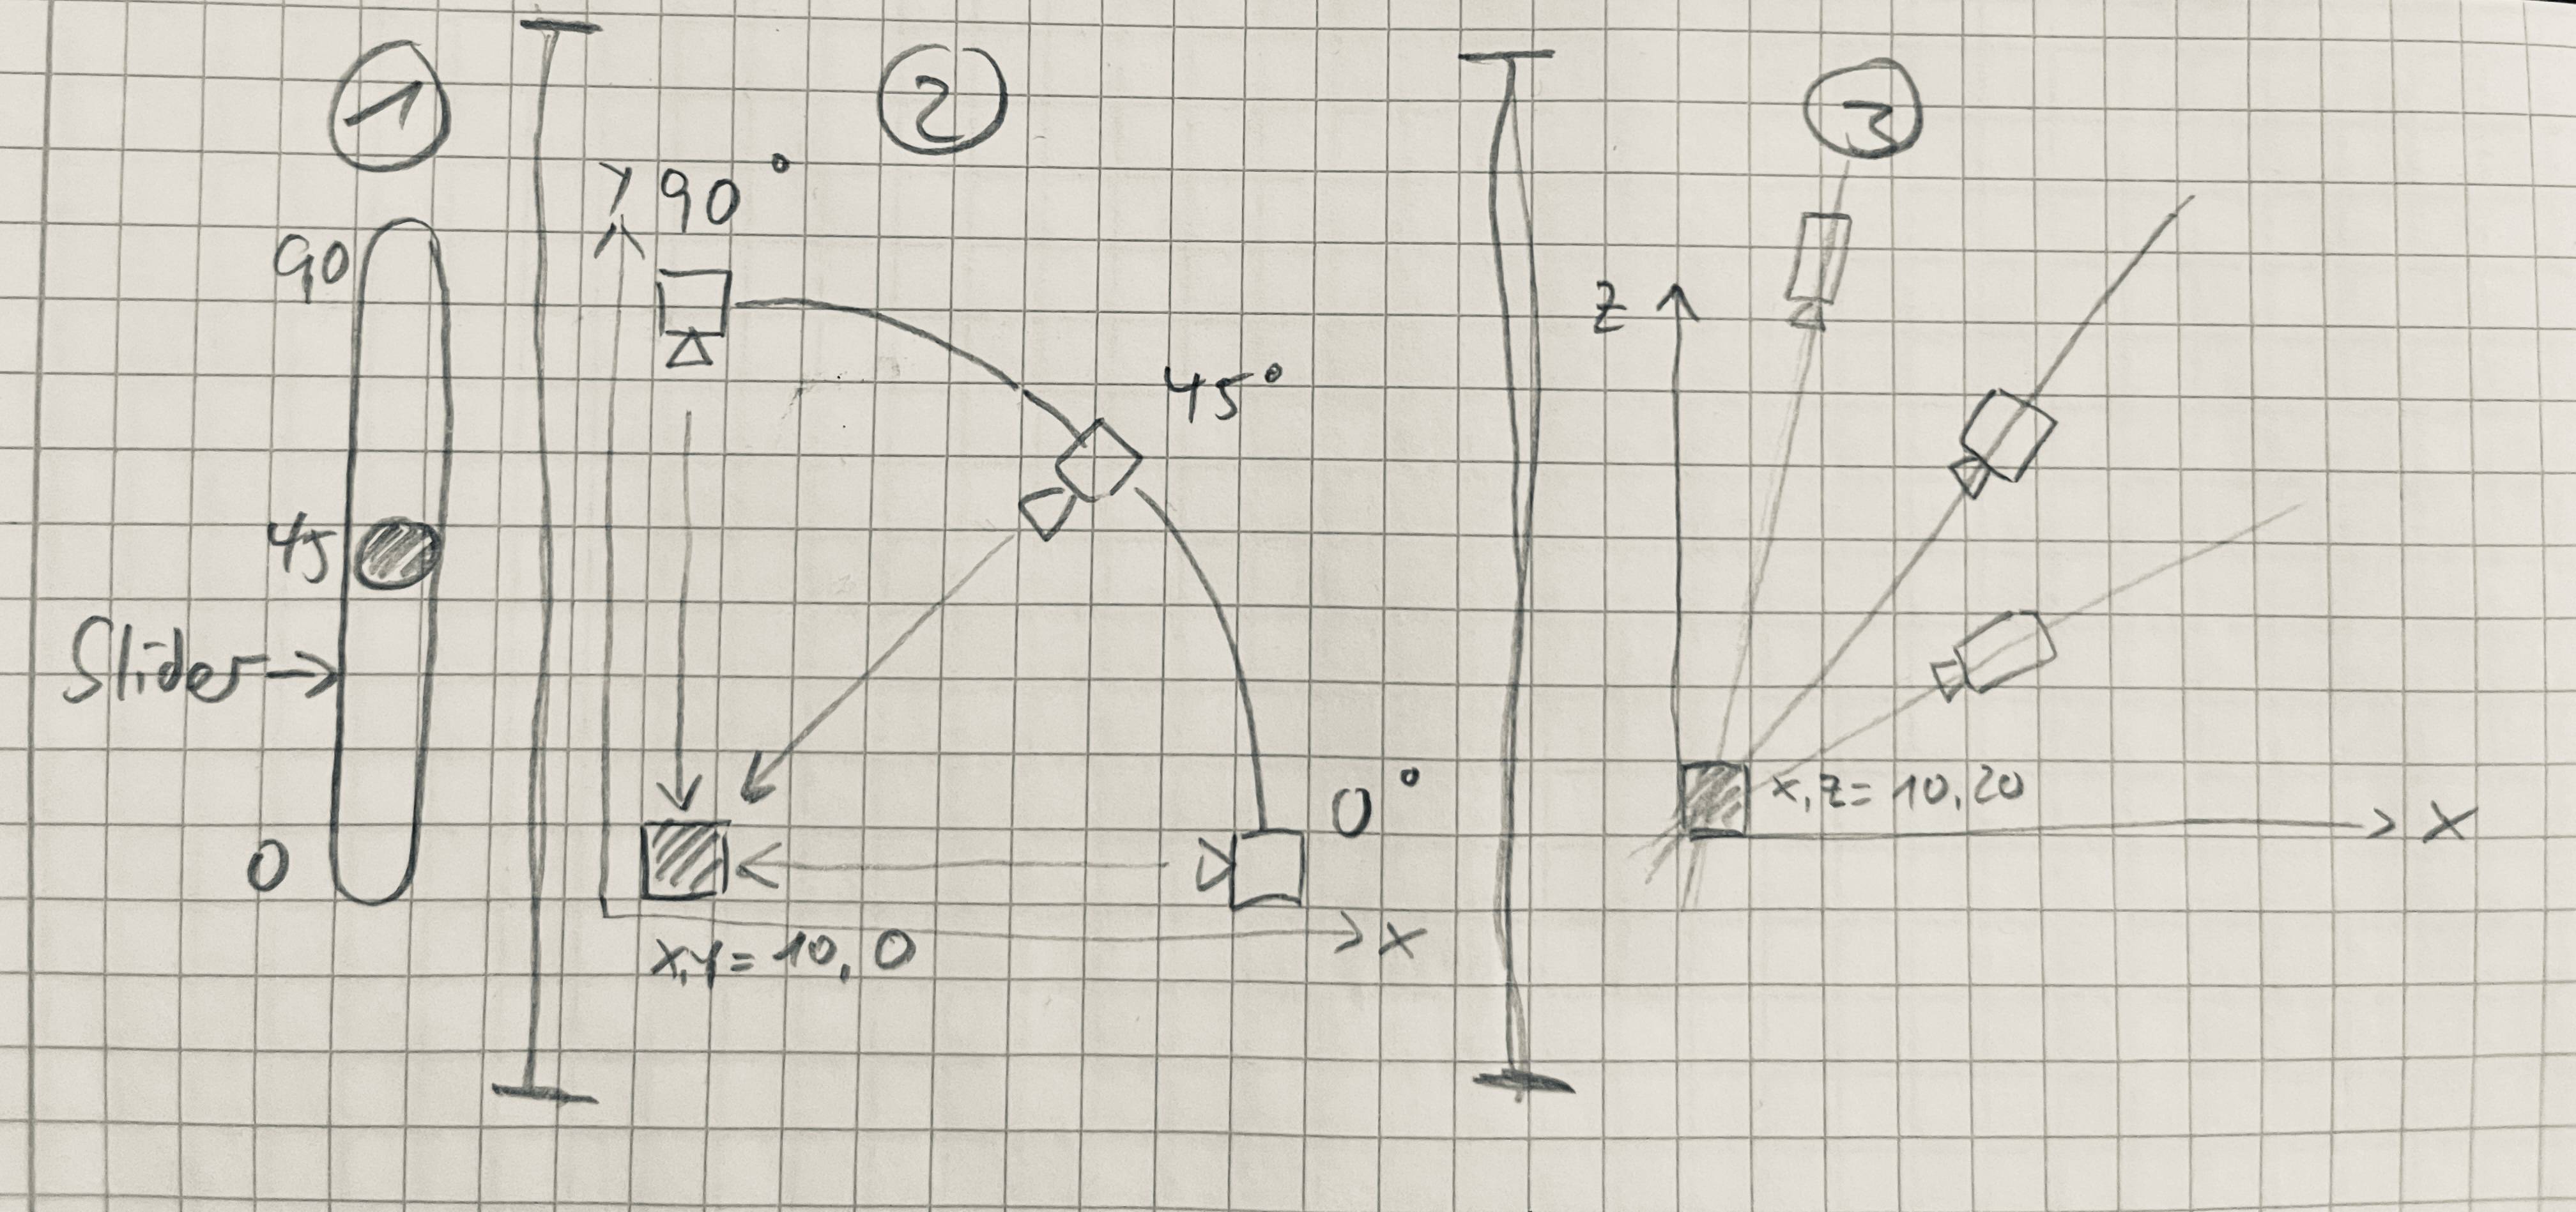 1
90
45
Slider
0
2
y 90°
45°
0°
x
x,y = 10, 0
3
z
x, z = 10, 20
x